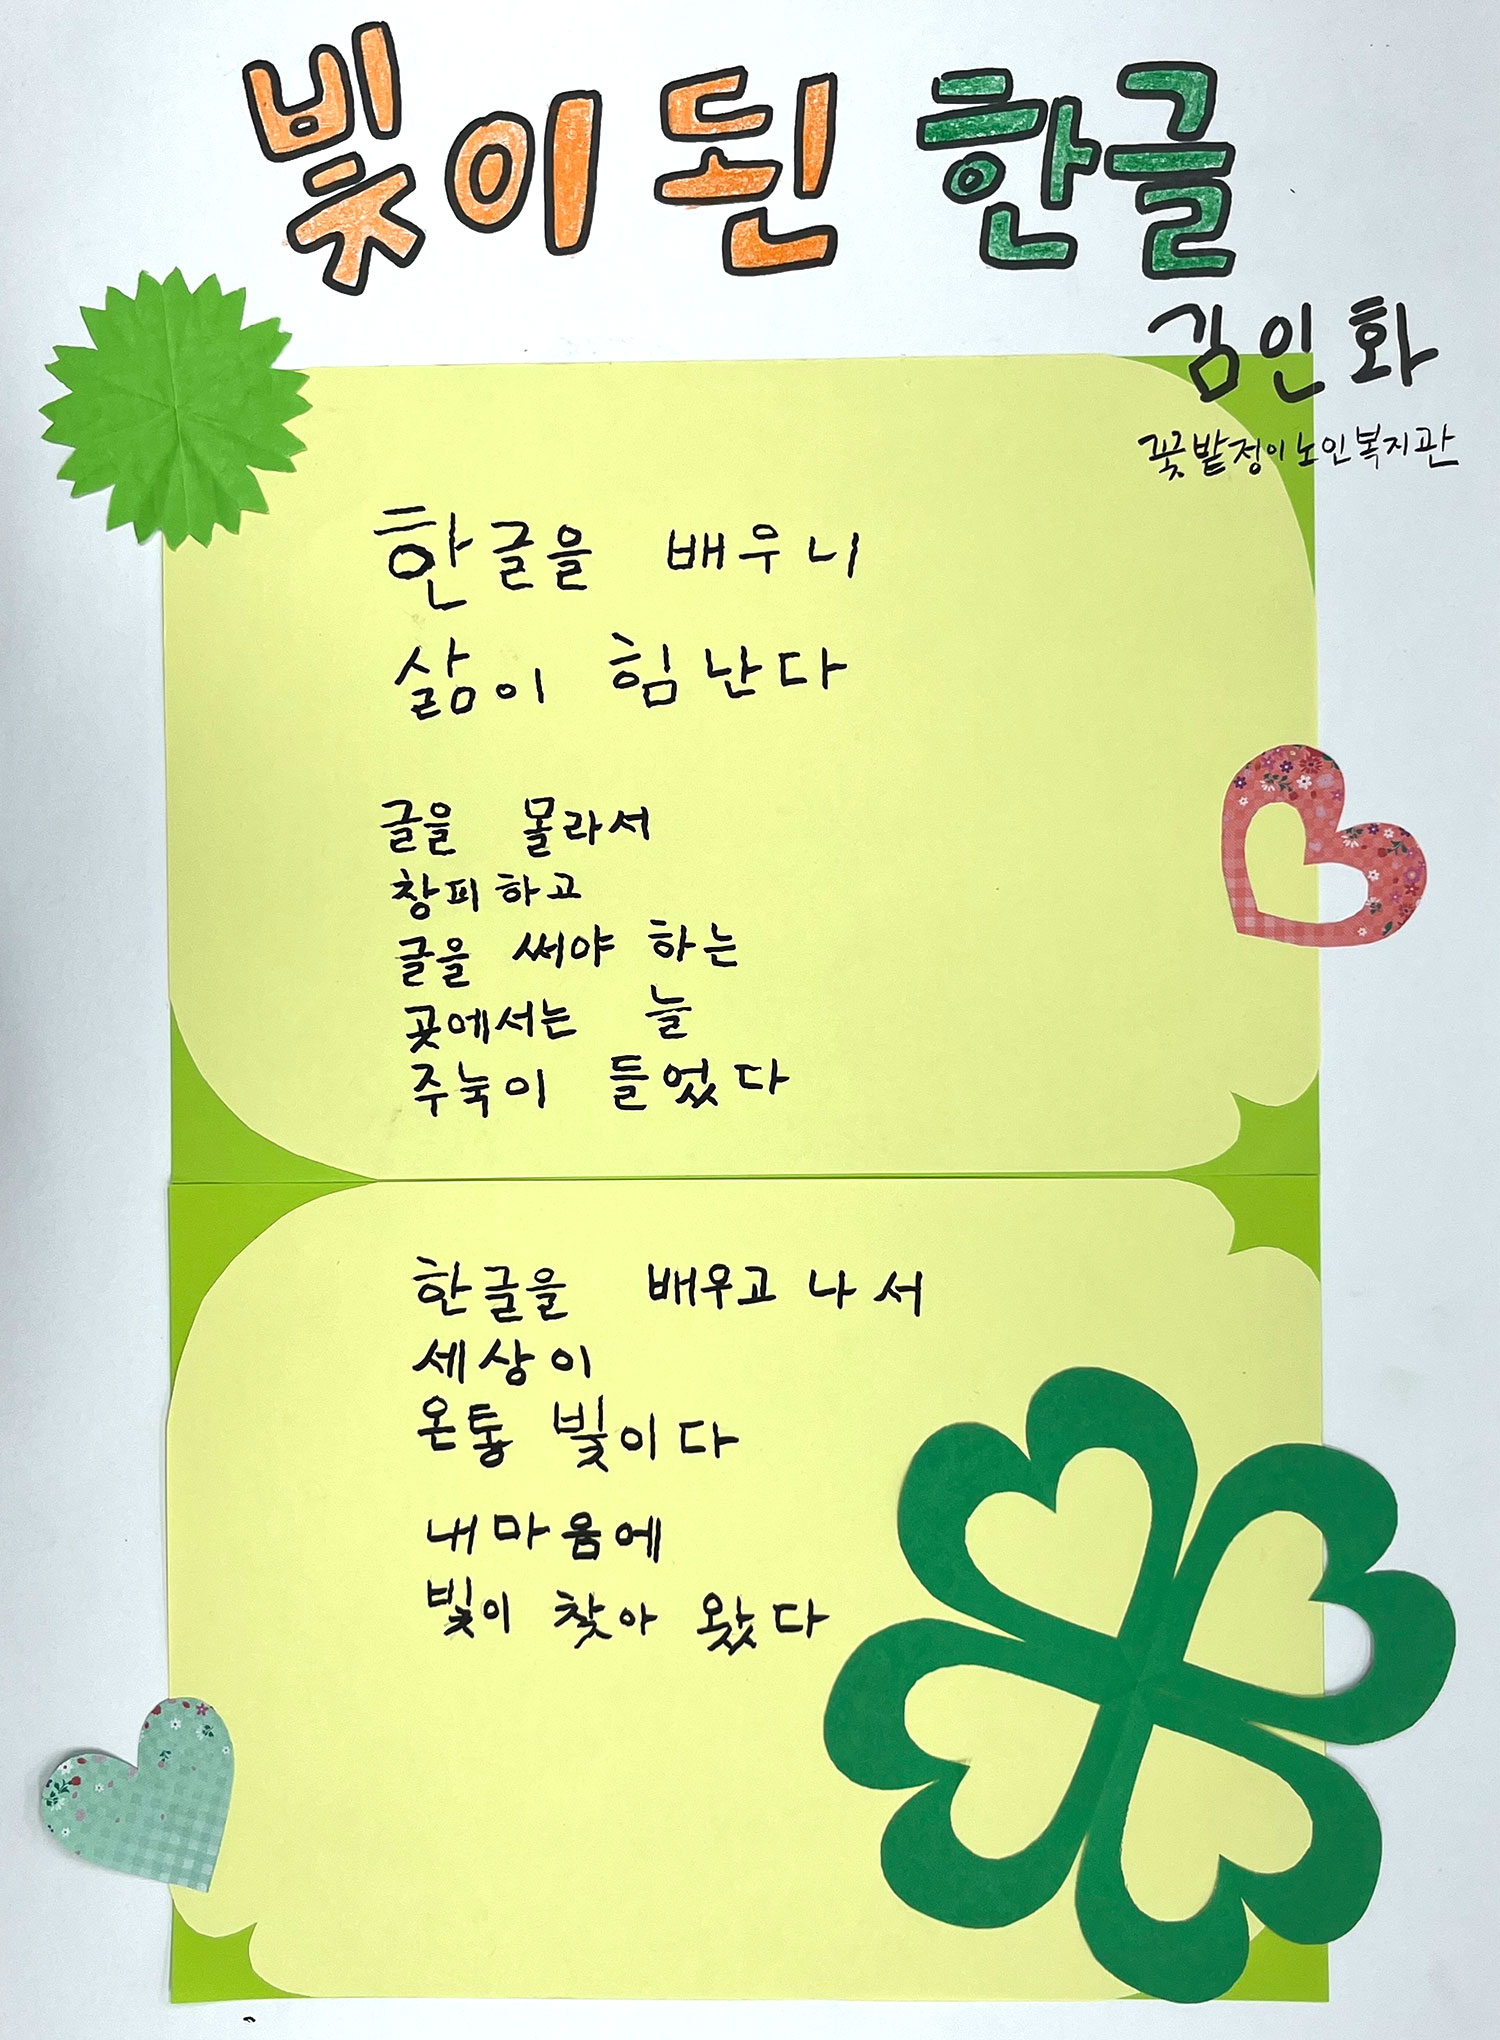 빛이 된 한글
김인화
꽃밭정이노인복지관
한글을 배우니
삶이 힘난다
글을 몰라서
창피하고
글을 써야 하는
곳에서는 늘
주눅이 들었다
한글을 배우고 나서
세상이
온통 빛이다
내마음에
빛이 찾아 왔다